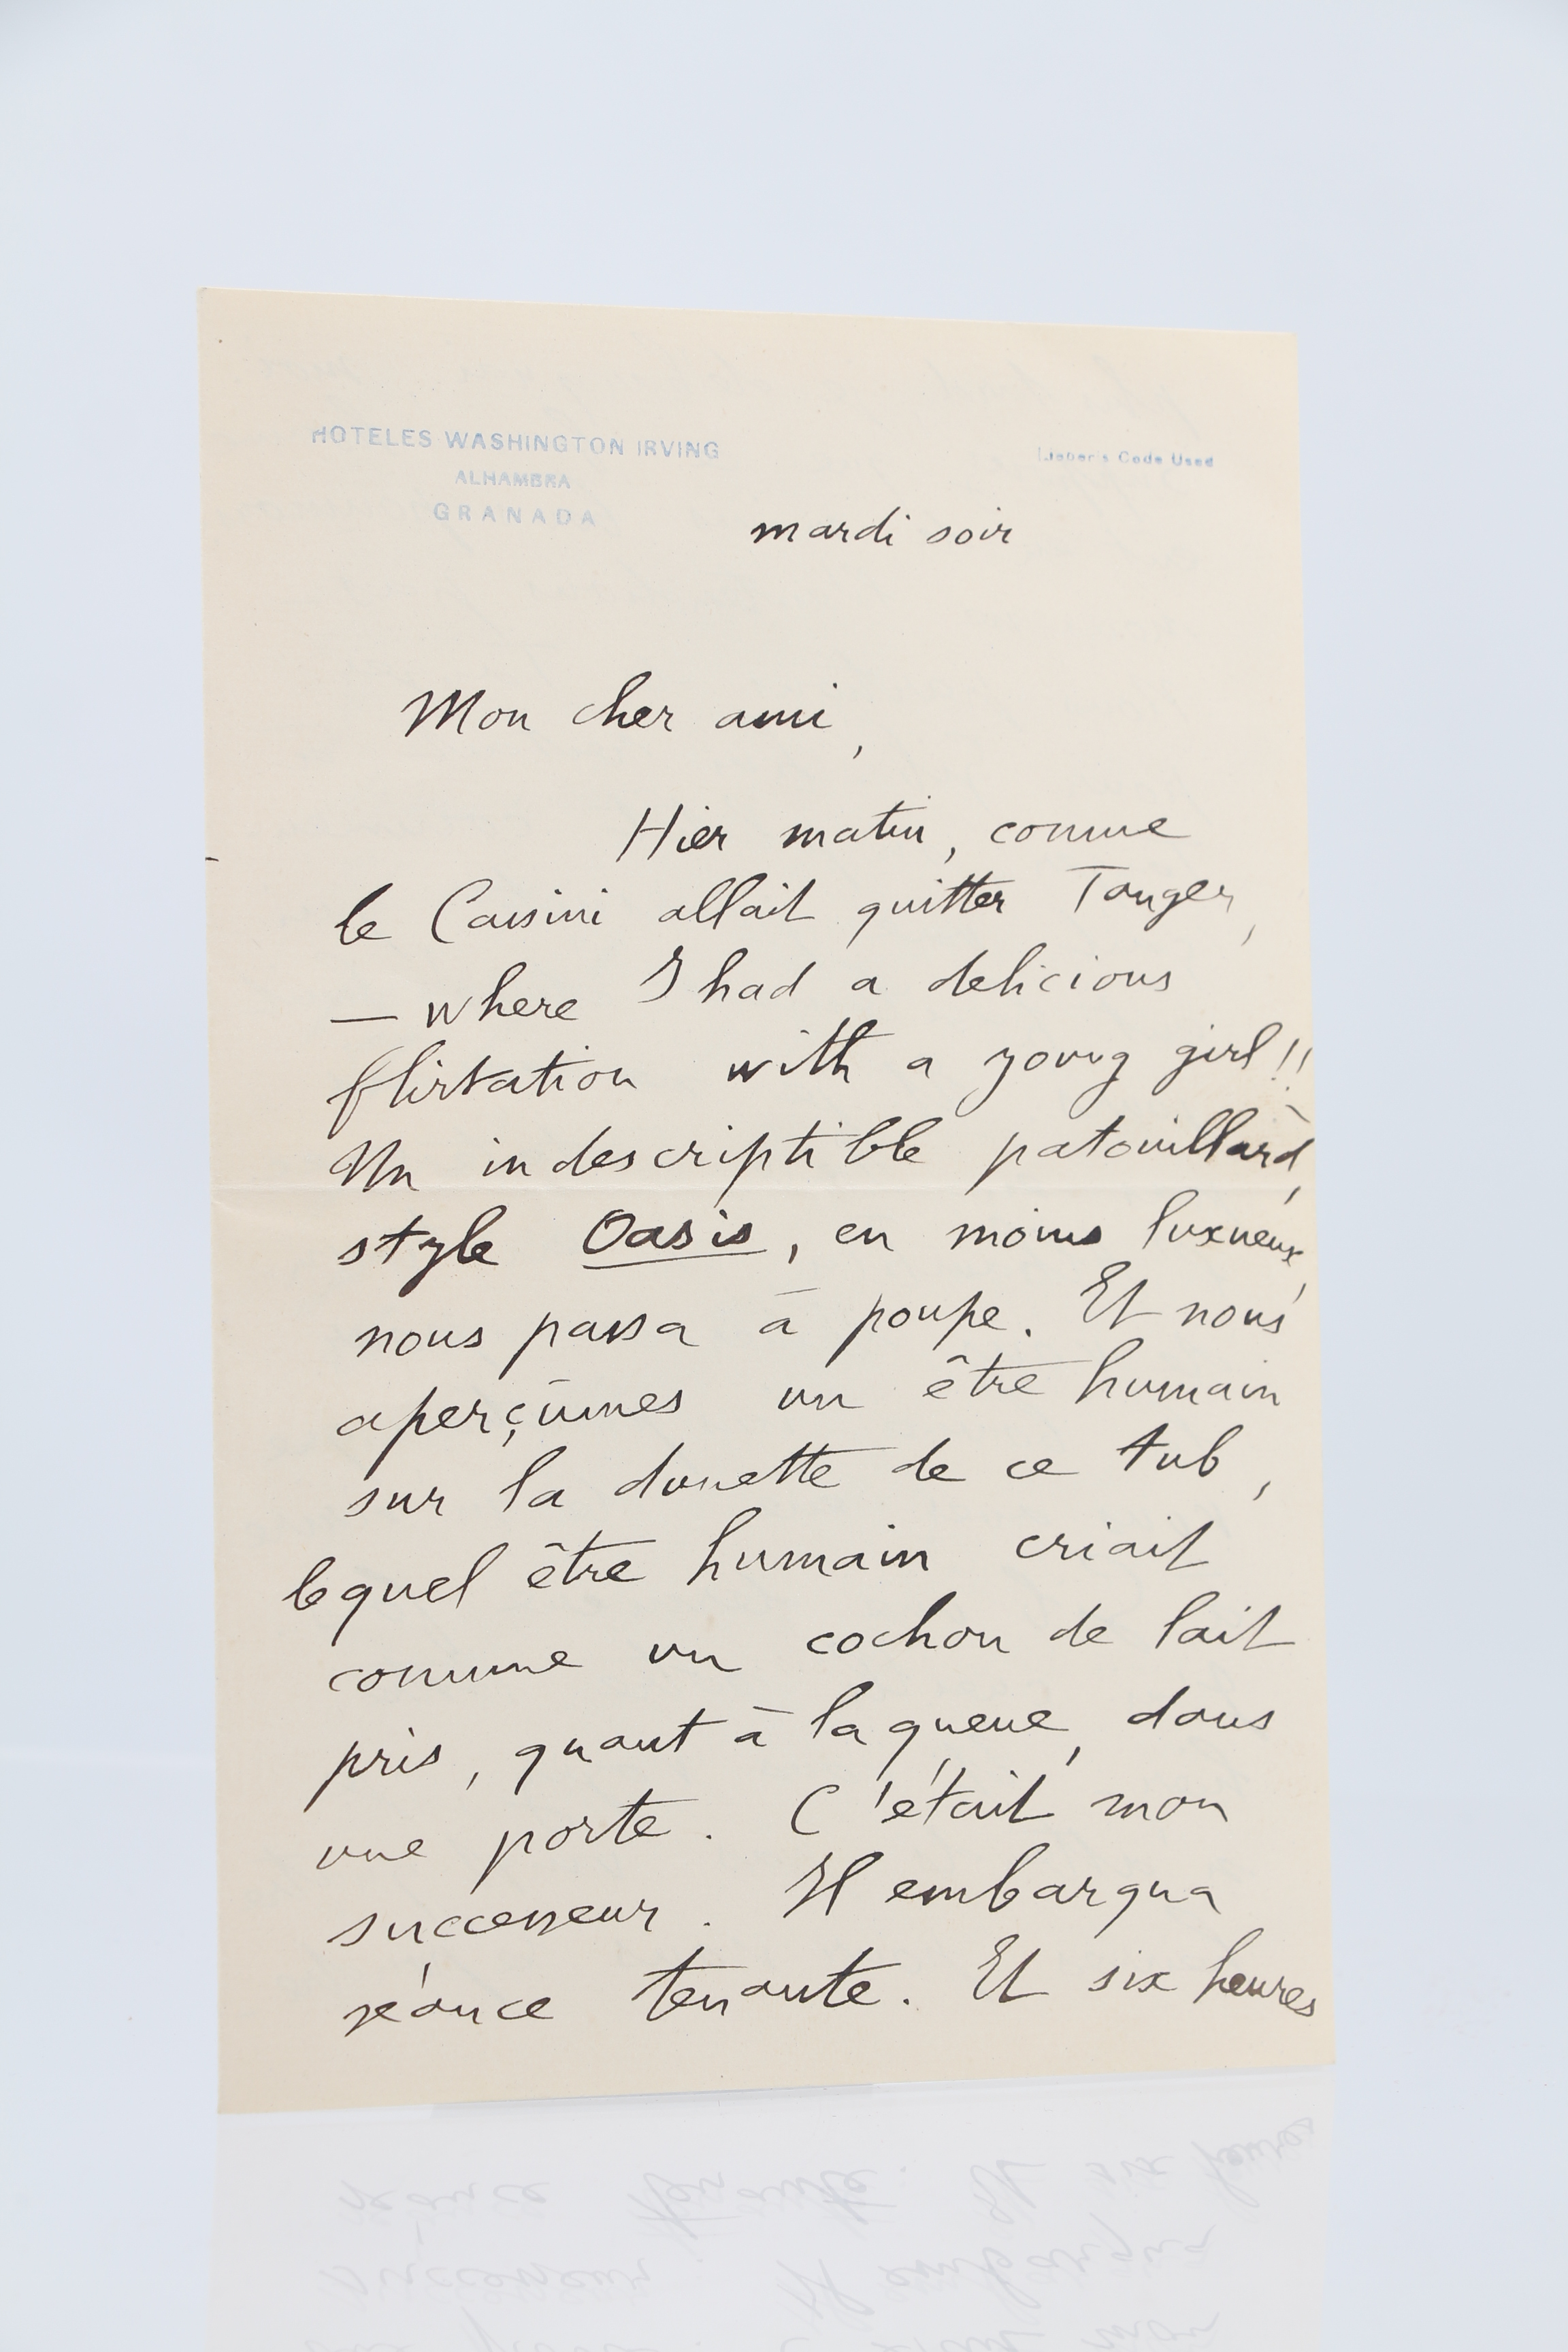 HOTELES WASHINGTON IRVING
ALHAMBRA
GRANADA
Lieber's Code Used
mardi soir
Mon cher ami,
Hier matin, comme
le Cassini allait quitter Tanger,
— where I had a delicious
flirtation with a young girl!! —
Un indescriptible patouillard,
style Oasis, en moins luxueux,
nous passa à poupe. Et nous
aperçûmes un être humain
sur la dunette de ce tub,
lequel être humain criait
comme un cochon de lait
pris, quant à la queue, dans
une porte. C'était mon
successeur. Il embarqua
séance tenante. Et six heures